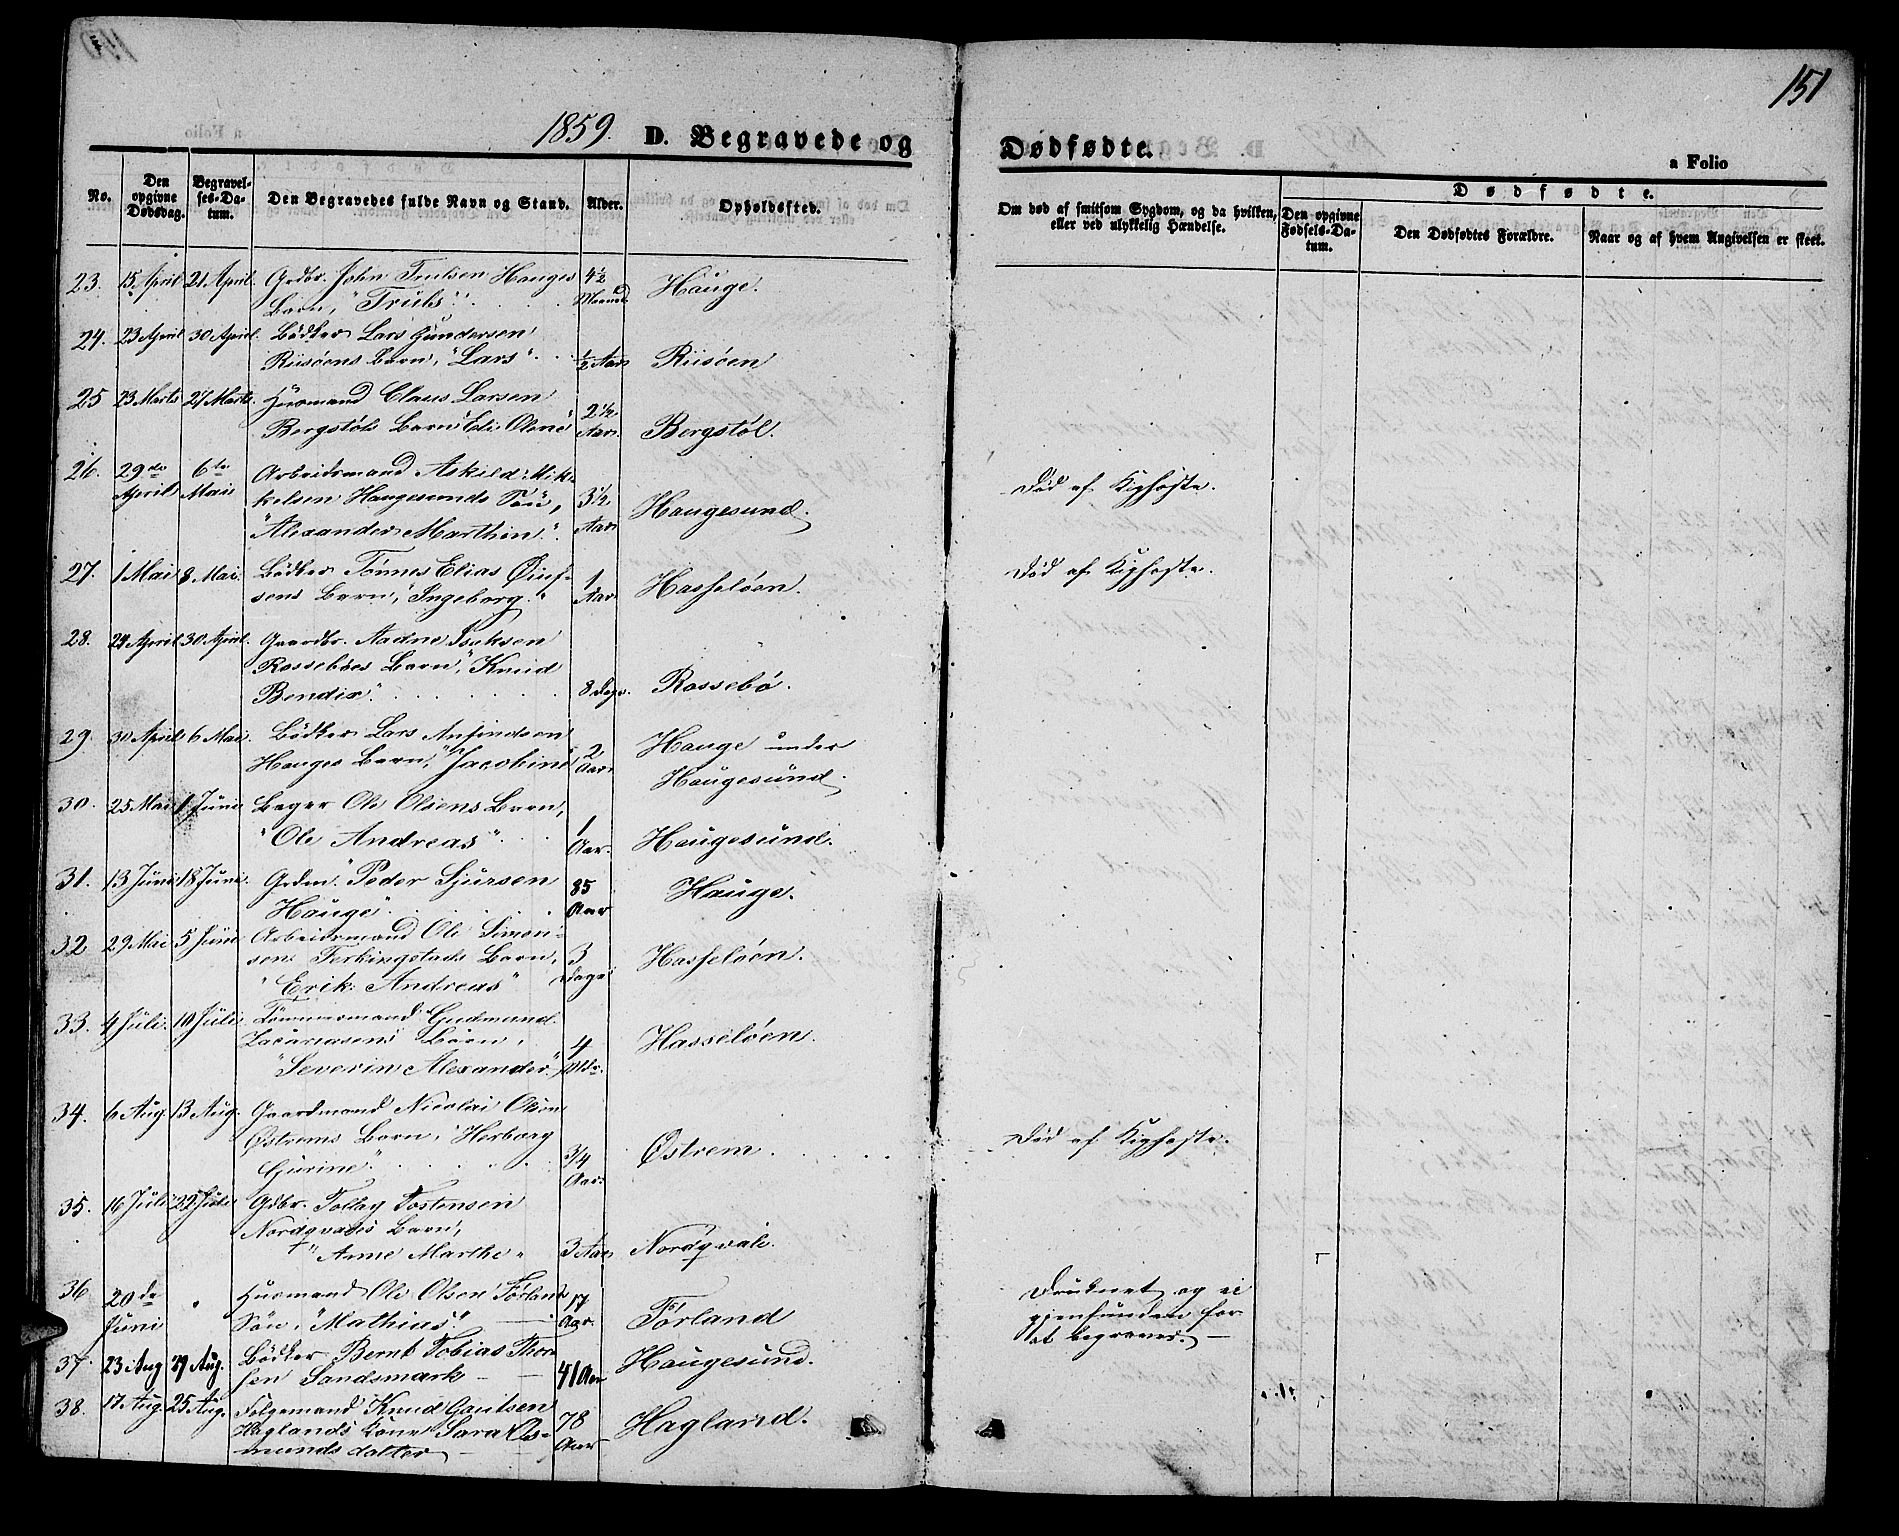 151
1859. D. Begravede og Dødfødte.
a Folio
No. Den opgivne Dødsdag. Begravelses-Datum. Den Begravedes fulde Navn og Stand. Alder. Opholdssted. Om død af smitsom Sygdom, og da hvilken, eller ved ulykkelig Hændelse. Dødfødte. Den opgivne Fødsels-Datum. Den Dødfødtes Forældre. Naar og af hvem Angivelsen er skeet.
23. 15 April 21 April. Grdbr. John Trulsen Hauges 4½ Hauge.
Barn, "Truls". Maaned
24. 23 April 30 April. Bödker Lars Gundersen
Riisöens Barn, "Lars". ½ Aar Riisöen
25 23 Marts 27 Marts. Huusmand Claus Larsen 2½
Bergstöls Barn "Eli Olene" Aar. Bergstöl.
26. 29de 6te Arbeidsmand Askild Mik-
April Mai kelsen Haugesunds Sön, 3½ Haugesund. Död af Kighoste.
"Alexander Marthin". Aar
27. 1 Mai 8 Mai. Bödker Tönnes Elias 1 Hasselöen. Död af Kighoste.
sens Barn, "Ingeborg." Aar
28. 24 April 30 April. Gaardbr. Aadne Isaksen
Rossebös Barn, "Knud
Bendix". 8 Dage. Rossebö.
29. 30 April 6 Mai Bödker Lars Anfindsen 2 Hauge under
Hauges Barn, "Jacobine" Aar Haugesund.
30. 25 Mai 1 Juni Bager Ole Olsens Barn, 1
"Ole Andreas" Aar. Haugesund.
31. 13 Juni 18 Juni. Grdm. "Peder Sjursen 85 Hauge.
Hauge". Aar
32 29 Mai 5 Juni Arbeidsmand Ole Simon-
sens Ferkingstads Barn, 3 Hasselöen.
"Erik Andreas" Dage
33. 4 Juli. 10 Juli Tömmermand Gudmund
Zacariasens Barn, 4 Hasselöen.
"Severin Alexander."
34. 6 Aug. 13 Aug. Gaardmand Nicolai Olsen
Østrems Barn, "Herborg Østrem. Död af Kighoste.
Gurine". 3/4 Aar
35. 16 Juli 22 Juli Gdbr. Tollag Tostensen
Nordqvales Barn,
"Anne Marthe" 3 Aar Nordqvale.
36 20de " Huusmand Ole Olsen Förlands 17 Förland Druknet og ei
Juni Sön, "Mathias". Aar gjenfunden for
at begraves.
37. 23 Aug 29 Aug. Bödker Bernt Tobias Thor-
sen Sandsmark 41 Aar Haugesund.
38. 17 Aug. 25 Aug. Folgemand Knud Gautsen 78 Hagland.
Haglands Kone Sara Os- Aar
munds datter